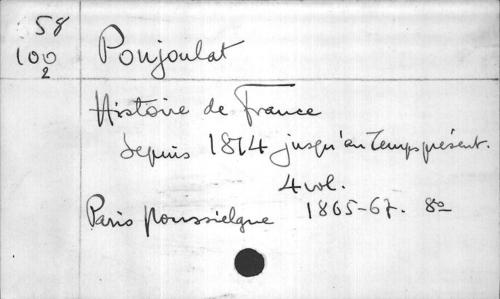 58
100
2
Poujoulat
Histoire de France
depuis 1814 jusqu'au temps présent.
4 vol.
Paris Poussielgue 1865-67. 8o